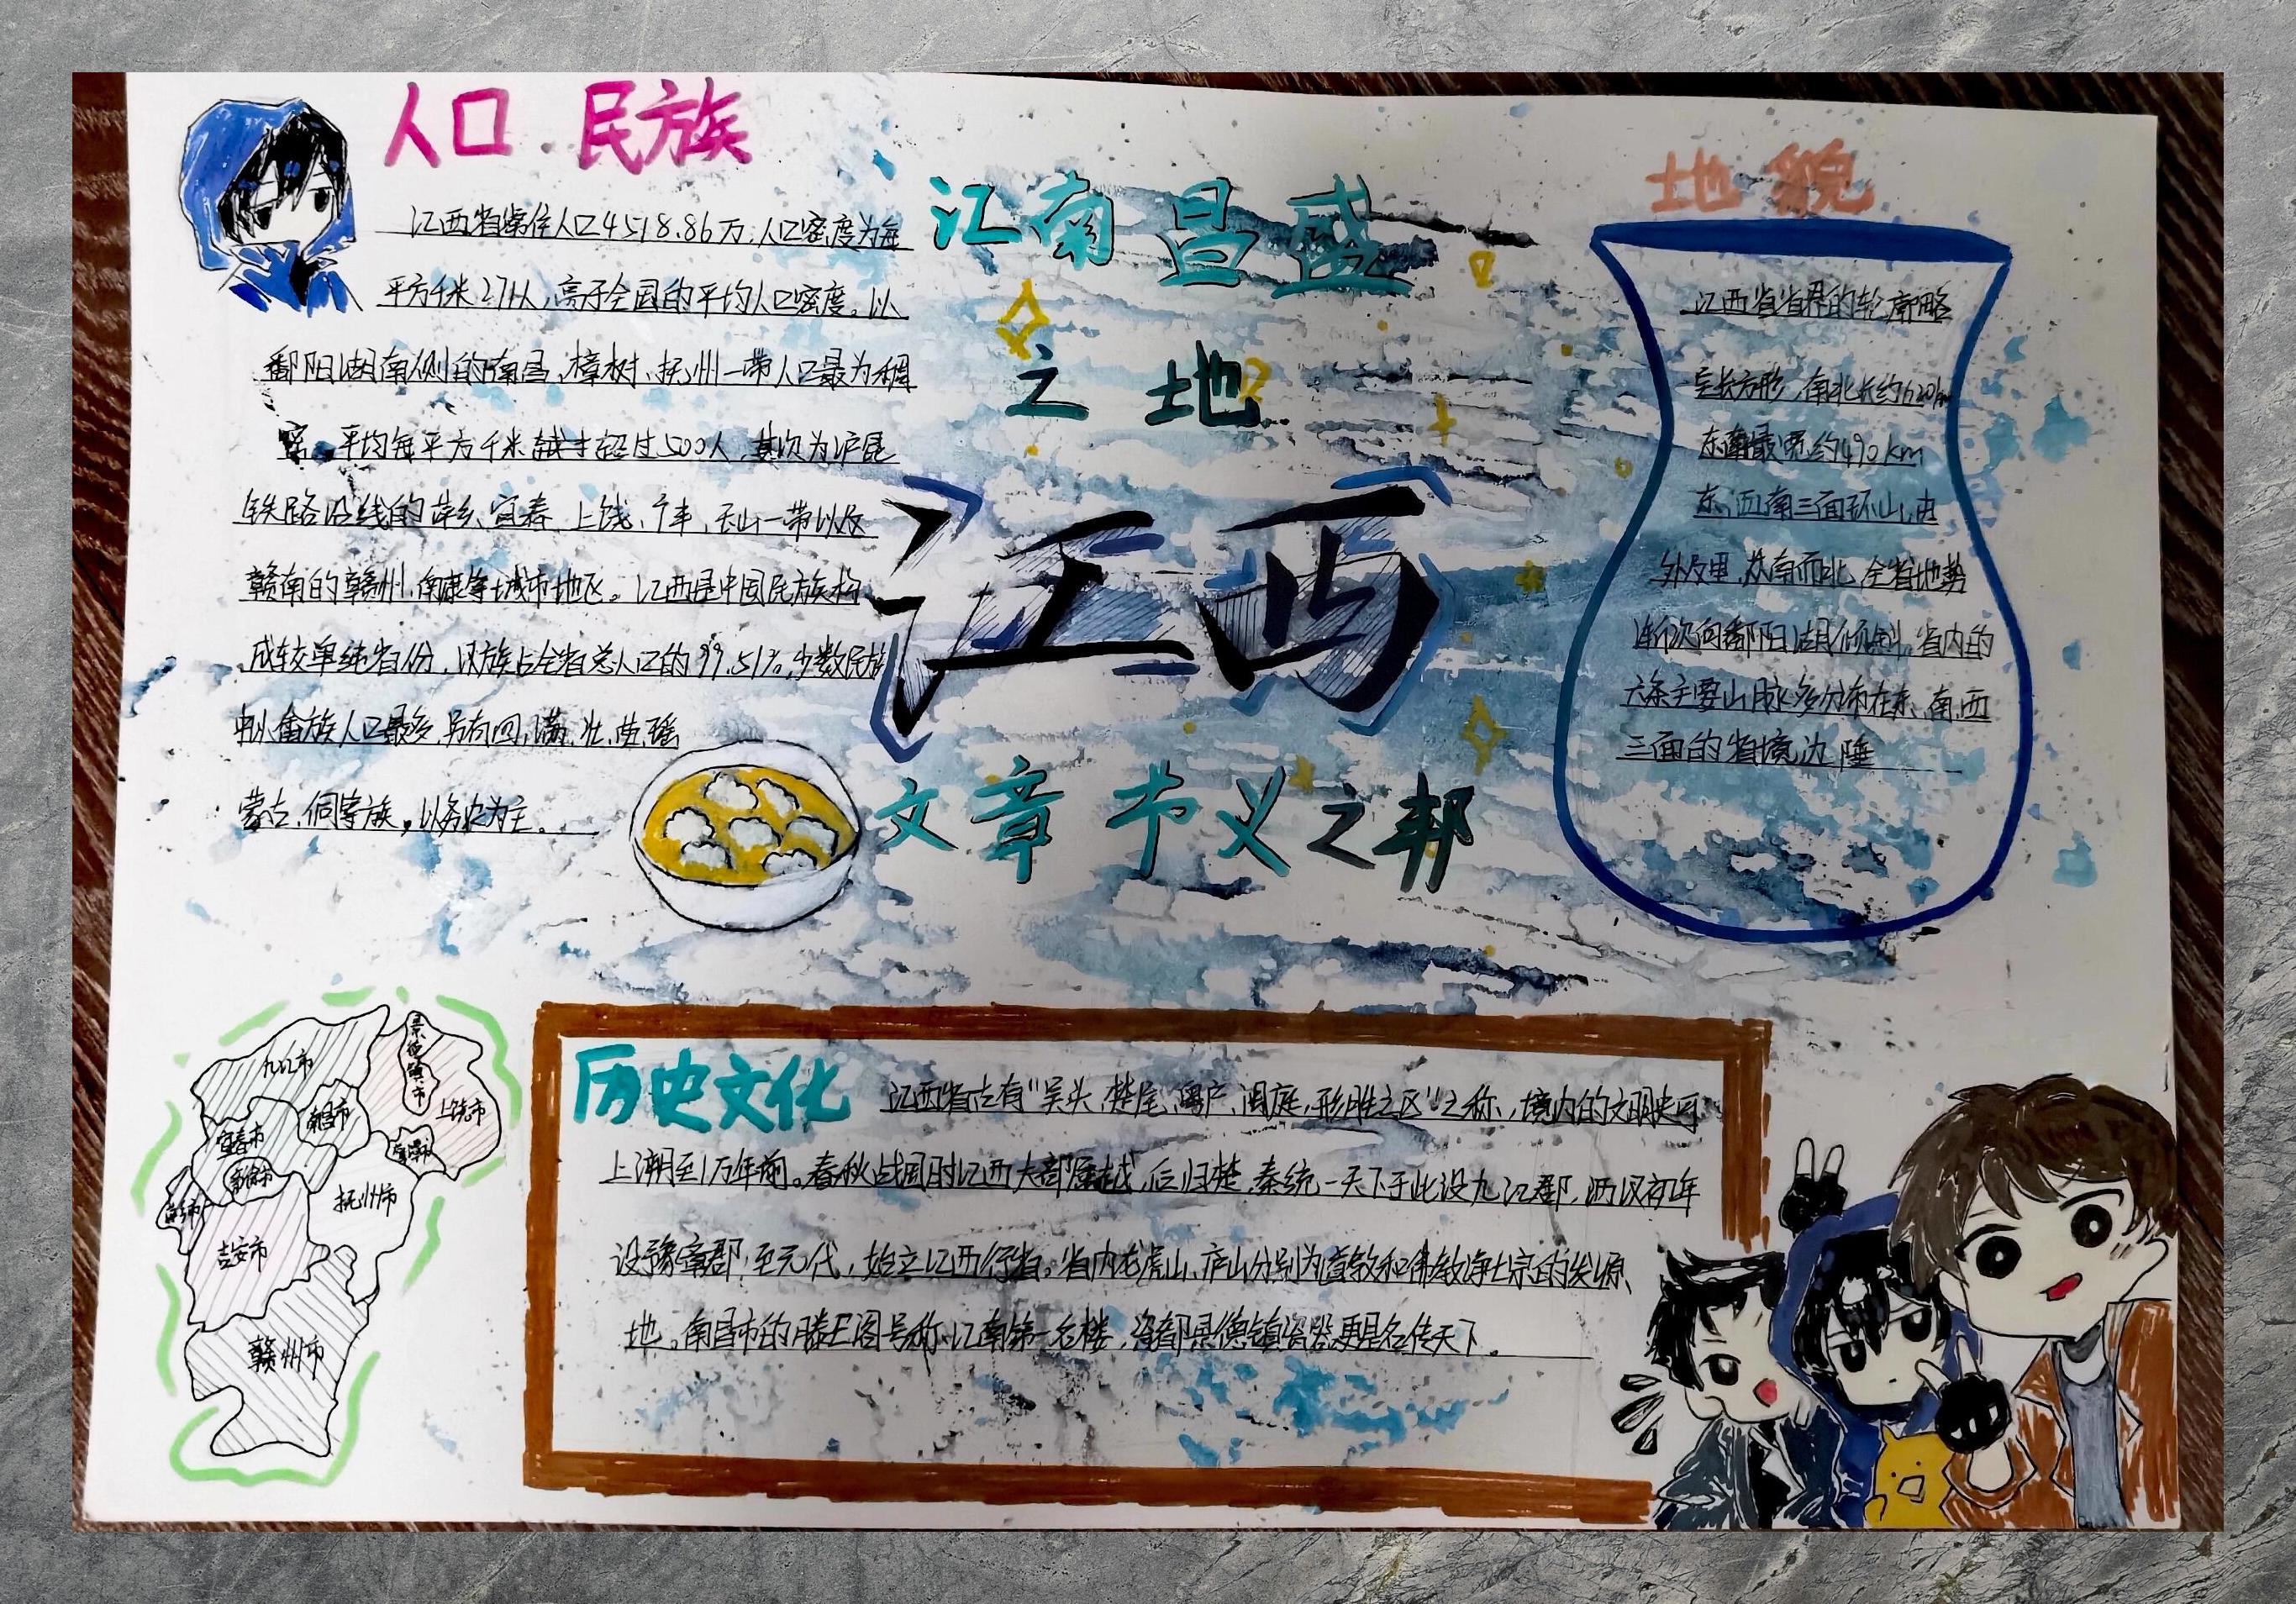 人口·民族
江西省常住人口4518.86万,人口密度为每
平方千米271人,高于全国的平均人口密度。以
鄱阳湖南侧的南昌、樟树、抚州一带人口最为稠
密。平均每平方千米超过500人,其次为沪昆
铁路沿线的萍乡、宜春、上饶、广丰、玉山一带以及
赣南的赣州、南康等城市地区。江西是中国民族构
成较单纯省份,汉族占全省总人口的99.51%,少数民族
中以畲族人口最多,另有回、满、壮、苗、瑶
蒙古、侗等族,以务农为主。
江南昌盛
之地
江西
文章节义之邦
地貌
江西省省界的轮廓略
呈长方形,南北长约620km
东西最宽约490km
东、西、南三面环山,由
外及里,从南而北,全省地势
渐次向鄱阳湖倾斜,省内的
六条主要山脉多分布在东、南、西
三面的省境边陲
九江市
景德镇市
上饶市
南昌市
宜春市
鹰潭市
新余市
萍乡市
抚州市
吉安市
赣州市
历史文化
江西省古有“吴头、楚尾、粤户、闽庭,形胜之区”之称,境内的文明史可
上溯至1万年前。春秋战国时江西大部属越,后归楚,秦统一天下于此设九江郡,西汉初年
设豫章郡,至元代,始立江西行省。省内龙虎山、庐山分别为道教和佛教净土宗的发源
地。南昌市的滕王阁号称江南第一名楼,瓷都景德镇瓷器更是名传天下。